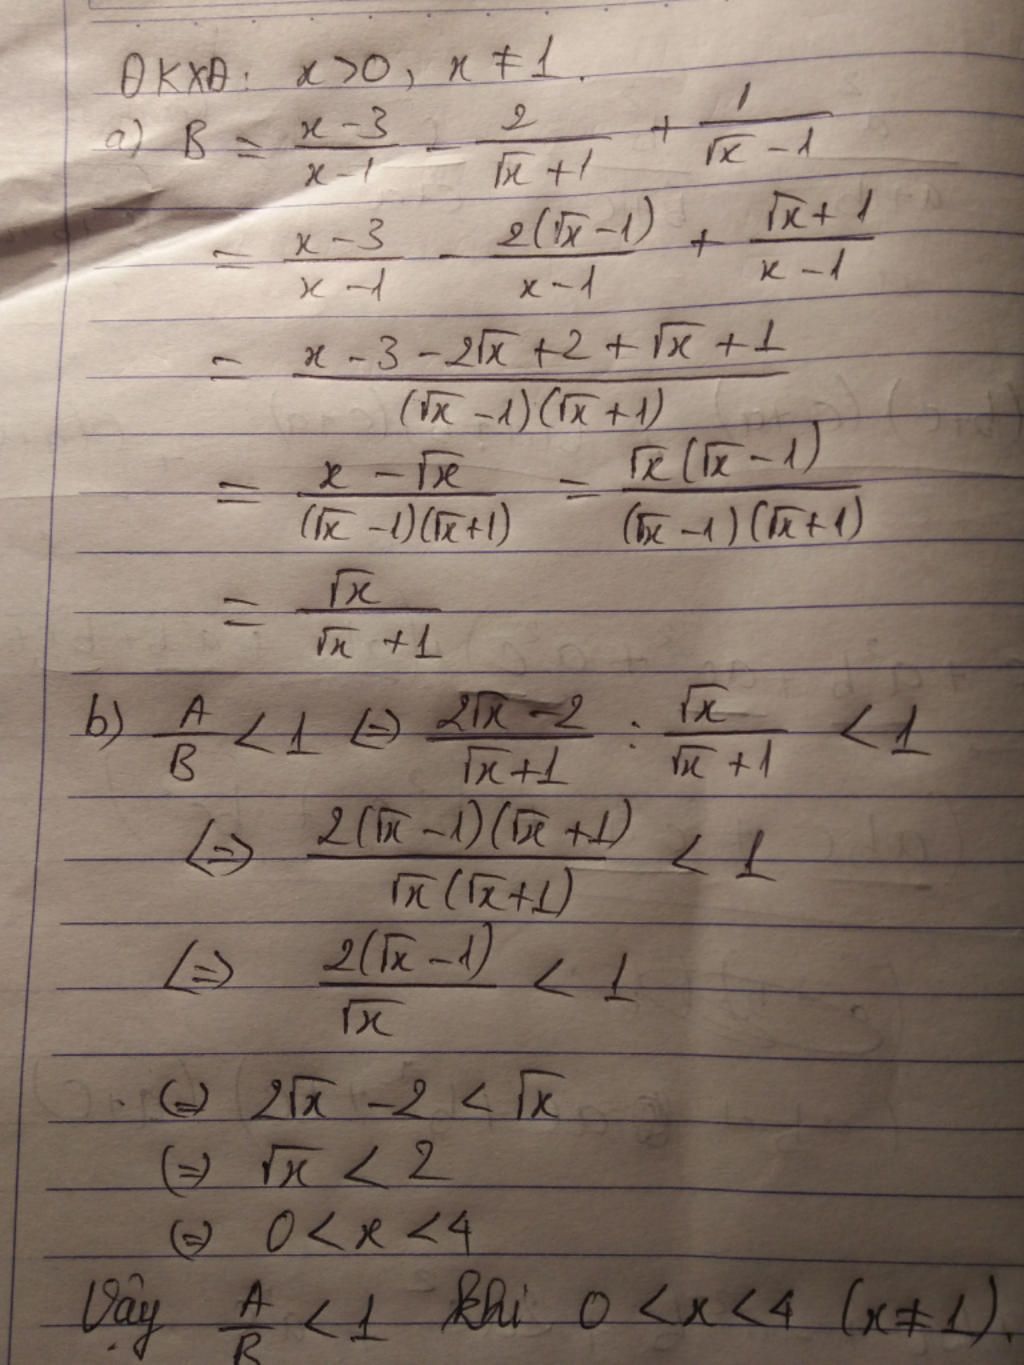 ĐKXĐ: x > 0, x ≠ 1.
a) B = (x - 3)/(x - 1) - 2/(√x + 1) + 1/(√x - 1)
= (x - 3)/(x - 1) - 2(√x - 1)/(x - 1) + (√x + 1)/(x - 1)
= (x - 3 - 2√x + 2 + √x + 1)/((√x - 1)(√x + 1))
= (x - √x)/((√x - 1)(√x + 1)) = √x(√x - 1)/((√x - 1)(√x + 1))
= √x/(√x + 1)
b) A/B < 1 (=) (2√x - 2)/(√x + 1) : √x/(√x + 1) < 1
<=> 2(√x - 1)(√x + 1)/(√x(√x + 1)) < 1
<=> 2(√x - 1)/√x < 1
(=) 2√x - 2 < √x
(=) √x < 2
(=) 0 < x < 4
Vậy A/B < 1 khi 0 < x < 4 (x ≠ 1).